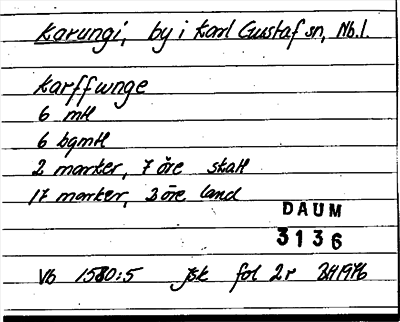 Karungi, by i Karl Gustaf sn, Nb.l.
Karffwnge
6 mtl
6 bgmtl
2 marker, 7 öre skatt
17 marker, 3 öre land
DAUM
3136
Vb 1580:5 jbk fol 2r